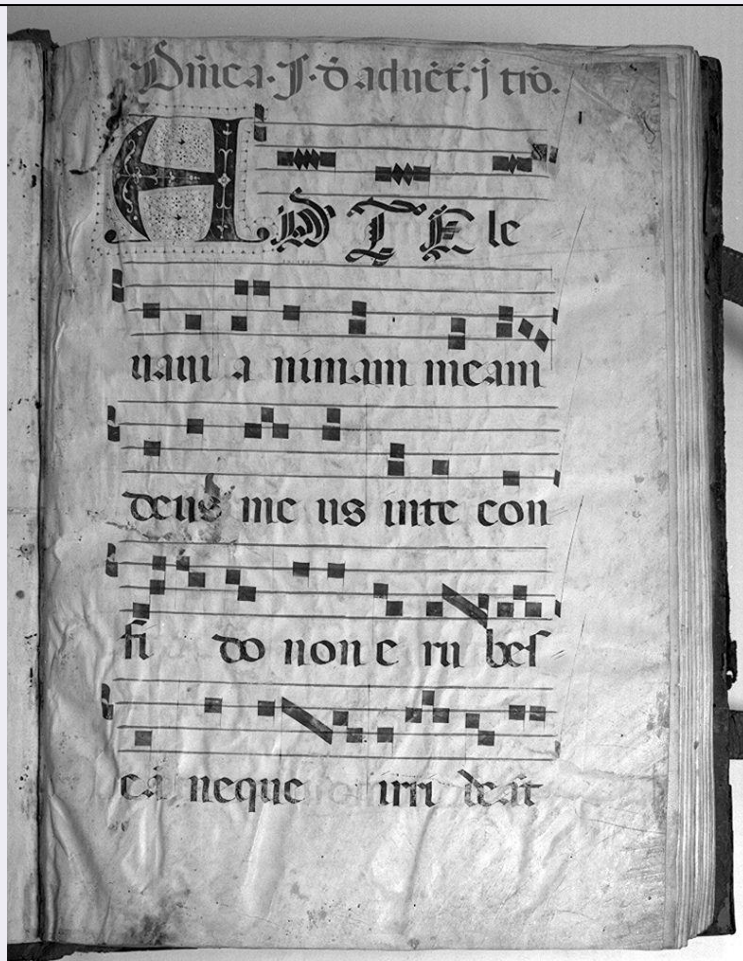 Dñica · I · d̄ aduēt̄. j̄ tro.
AD TE le
uaui a nimam meam
deus me us inte con
fi do non e ru bes
cā neque irri deāt